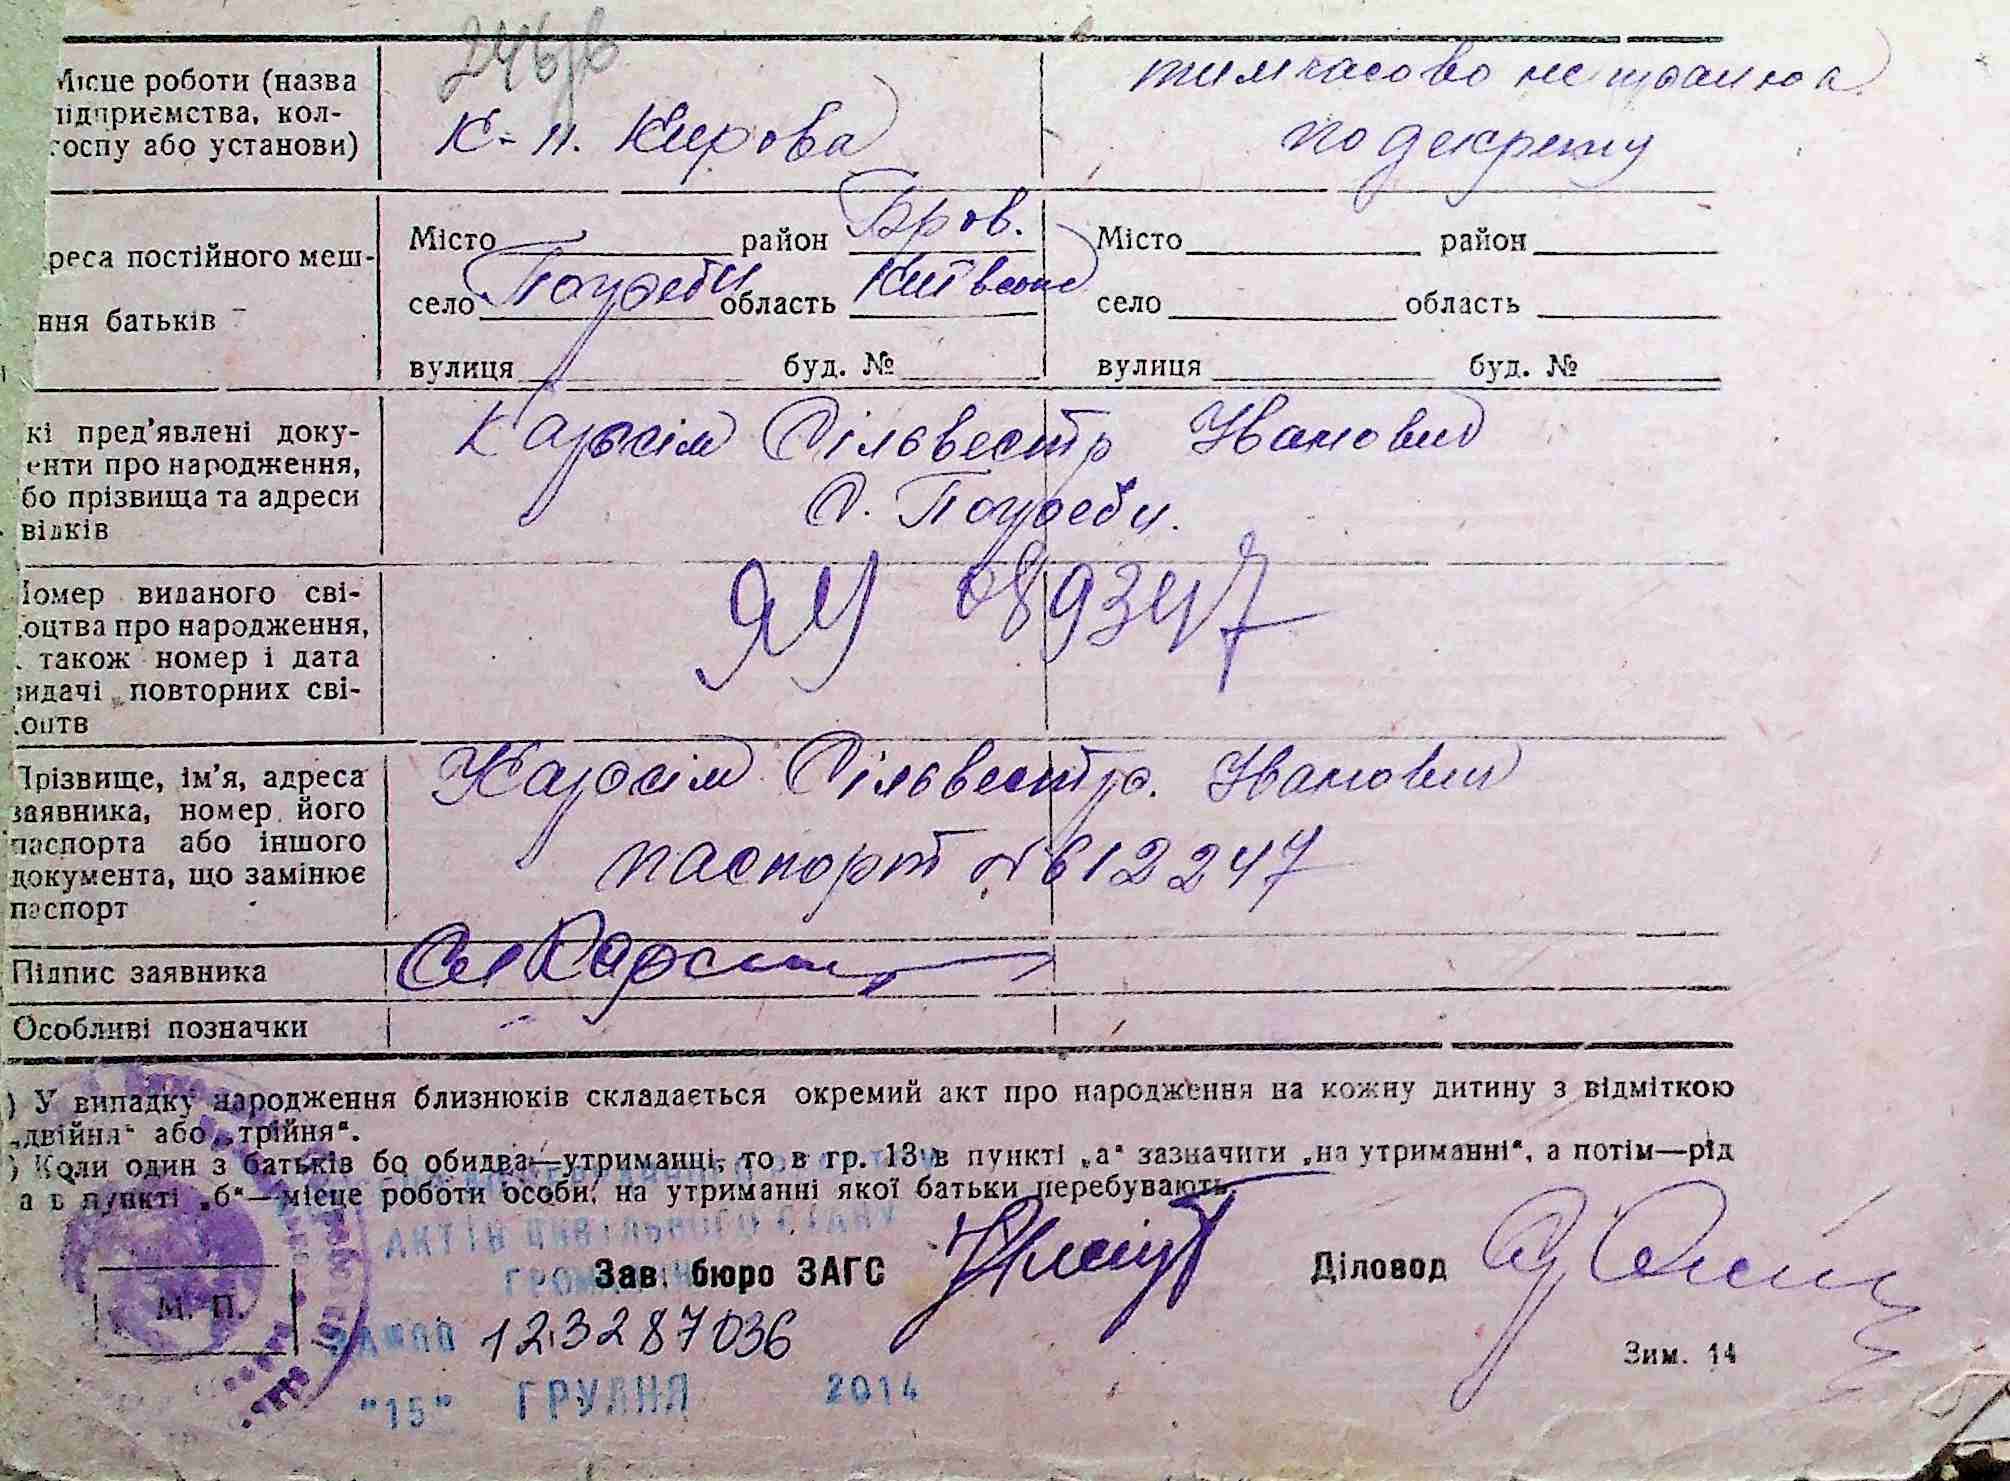 Місце роботи (назва
підприємства, кол-
госпу або установи)
к-п. Кирова
тимчасово не працює
по декрету
реса постійного меш-
ння батьків
Місто район Бров.
село Погреби область Київська
вулиця буд. №
Місто район
село область
вулиця буд. №
кі пред'явлені доку-
енти про народження,
бо прізвища та адреси
відків
Сільвестр Іванович
с. Погреби.
Номер виданого сві-
оцтва про народження,
також номер і дата
видачі повторних сві-
оцтв
ЯУ 089347
Прізвище, ім'я, адреса
заявника, номер його
паспорта або іншого
документа, що замінює
паспорт
Сільвестр. Іванович
паспорт № 612247
Підпис заявника
Особливі позначки
) У випадку народження близнюків складається окремий акт про народження на кожну дитину з відміткою
„двійня“ або „трійня“.
) Коли один з батьків бо обидва—утриманці, то в гр. 13 в пункті „а“ зазначити „на утриманні“, а потім—рід
а в пункті „б“—місце роботи особи, на утриманні якої батьки перебувають.
АКТІВ ЦИВІЛЬНОГО СТАНУ
Зав. бюро ЗАГС
Діловод
М. П.
123287036
Зим. 14
"15" ГРУДНЯ 2014